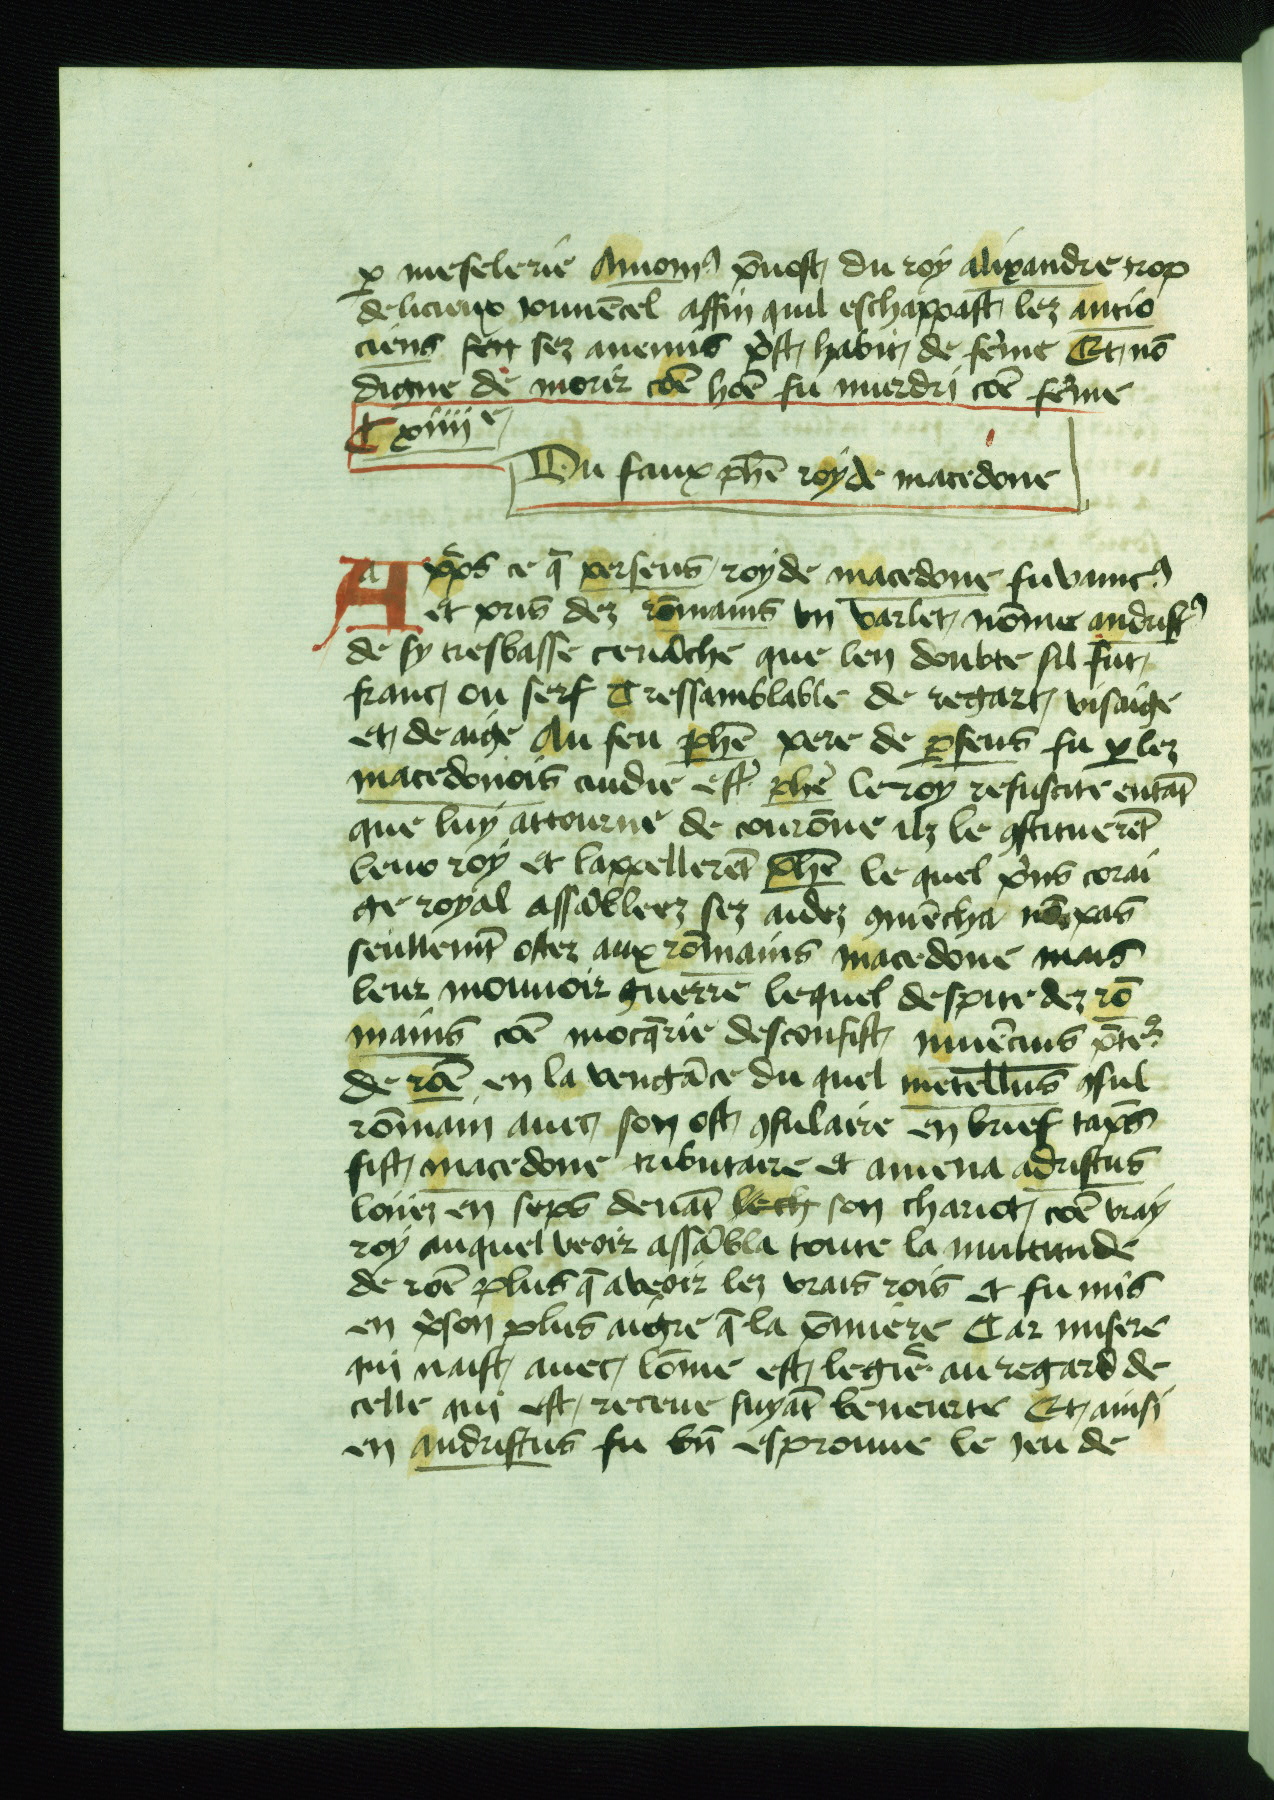 ꝑ meselerie Amonꝰ p̄uost du roy alixandre trop
delicieux iouuēcel affin quil eschappast lez antio
ciens sen sez anemis p̄st habit de fēme Et nō
digne de morir cōe hōe fu murdri cōe fēme
C xiiii e
Du faux phē roy de macedone
Ap̄s ce q̄ perseus roy de macedone fu vaincꝰ
et pris dez rōmains vn varlet nōme andristꝰ
de sy tresbasse ceuāche que len doubte sil fut
franc ou serf C ressamblable de regart visaige
et de aige Au feu phē pere de ꝑseus fu ꝑ lez
macedonois cudie estr̄ phē le roy resuscite entāt
que luy attourne de courōne ilz le ꝯstituerēt
leur roy et lappellerēt phē le quel p̄ns corai
ge royal assābleez sez aidez ꝯmēcha nō pas
seullemt̄ oster aux rōmains macedone mais
leur mouuoir guerre lequel despite dez rō
mains cōe mocq̄rie desconfist iuuēcius p̄teʳ
de rōe en la vengāce du quel metellus ꝯsul
rōmain auec son ost ꝯsulaire en brief tāps
fist macedone tributaire et amena ādristus
loiiez en seps deuāt son chariot cōe vray
roy auquel veoir assābla toute la multitude
de rōe plus q̄ a veoir lez vrais rois et fu mis
en p̄son plus aigre q̄ la p̄miere Car misere
qui naist auec lōme est legiē au regard de
celle qui est receue suyāt beneurte Et ainsi
en andristus fu bn̄ esprouue le ieu de